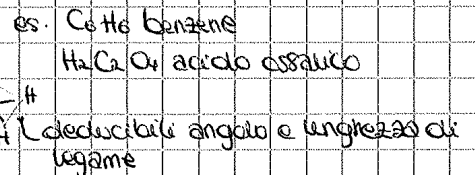 es. C6H6 benzene
H2C2O4 acido ossalico
H
deducibili angolo e lunghezza di
legame